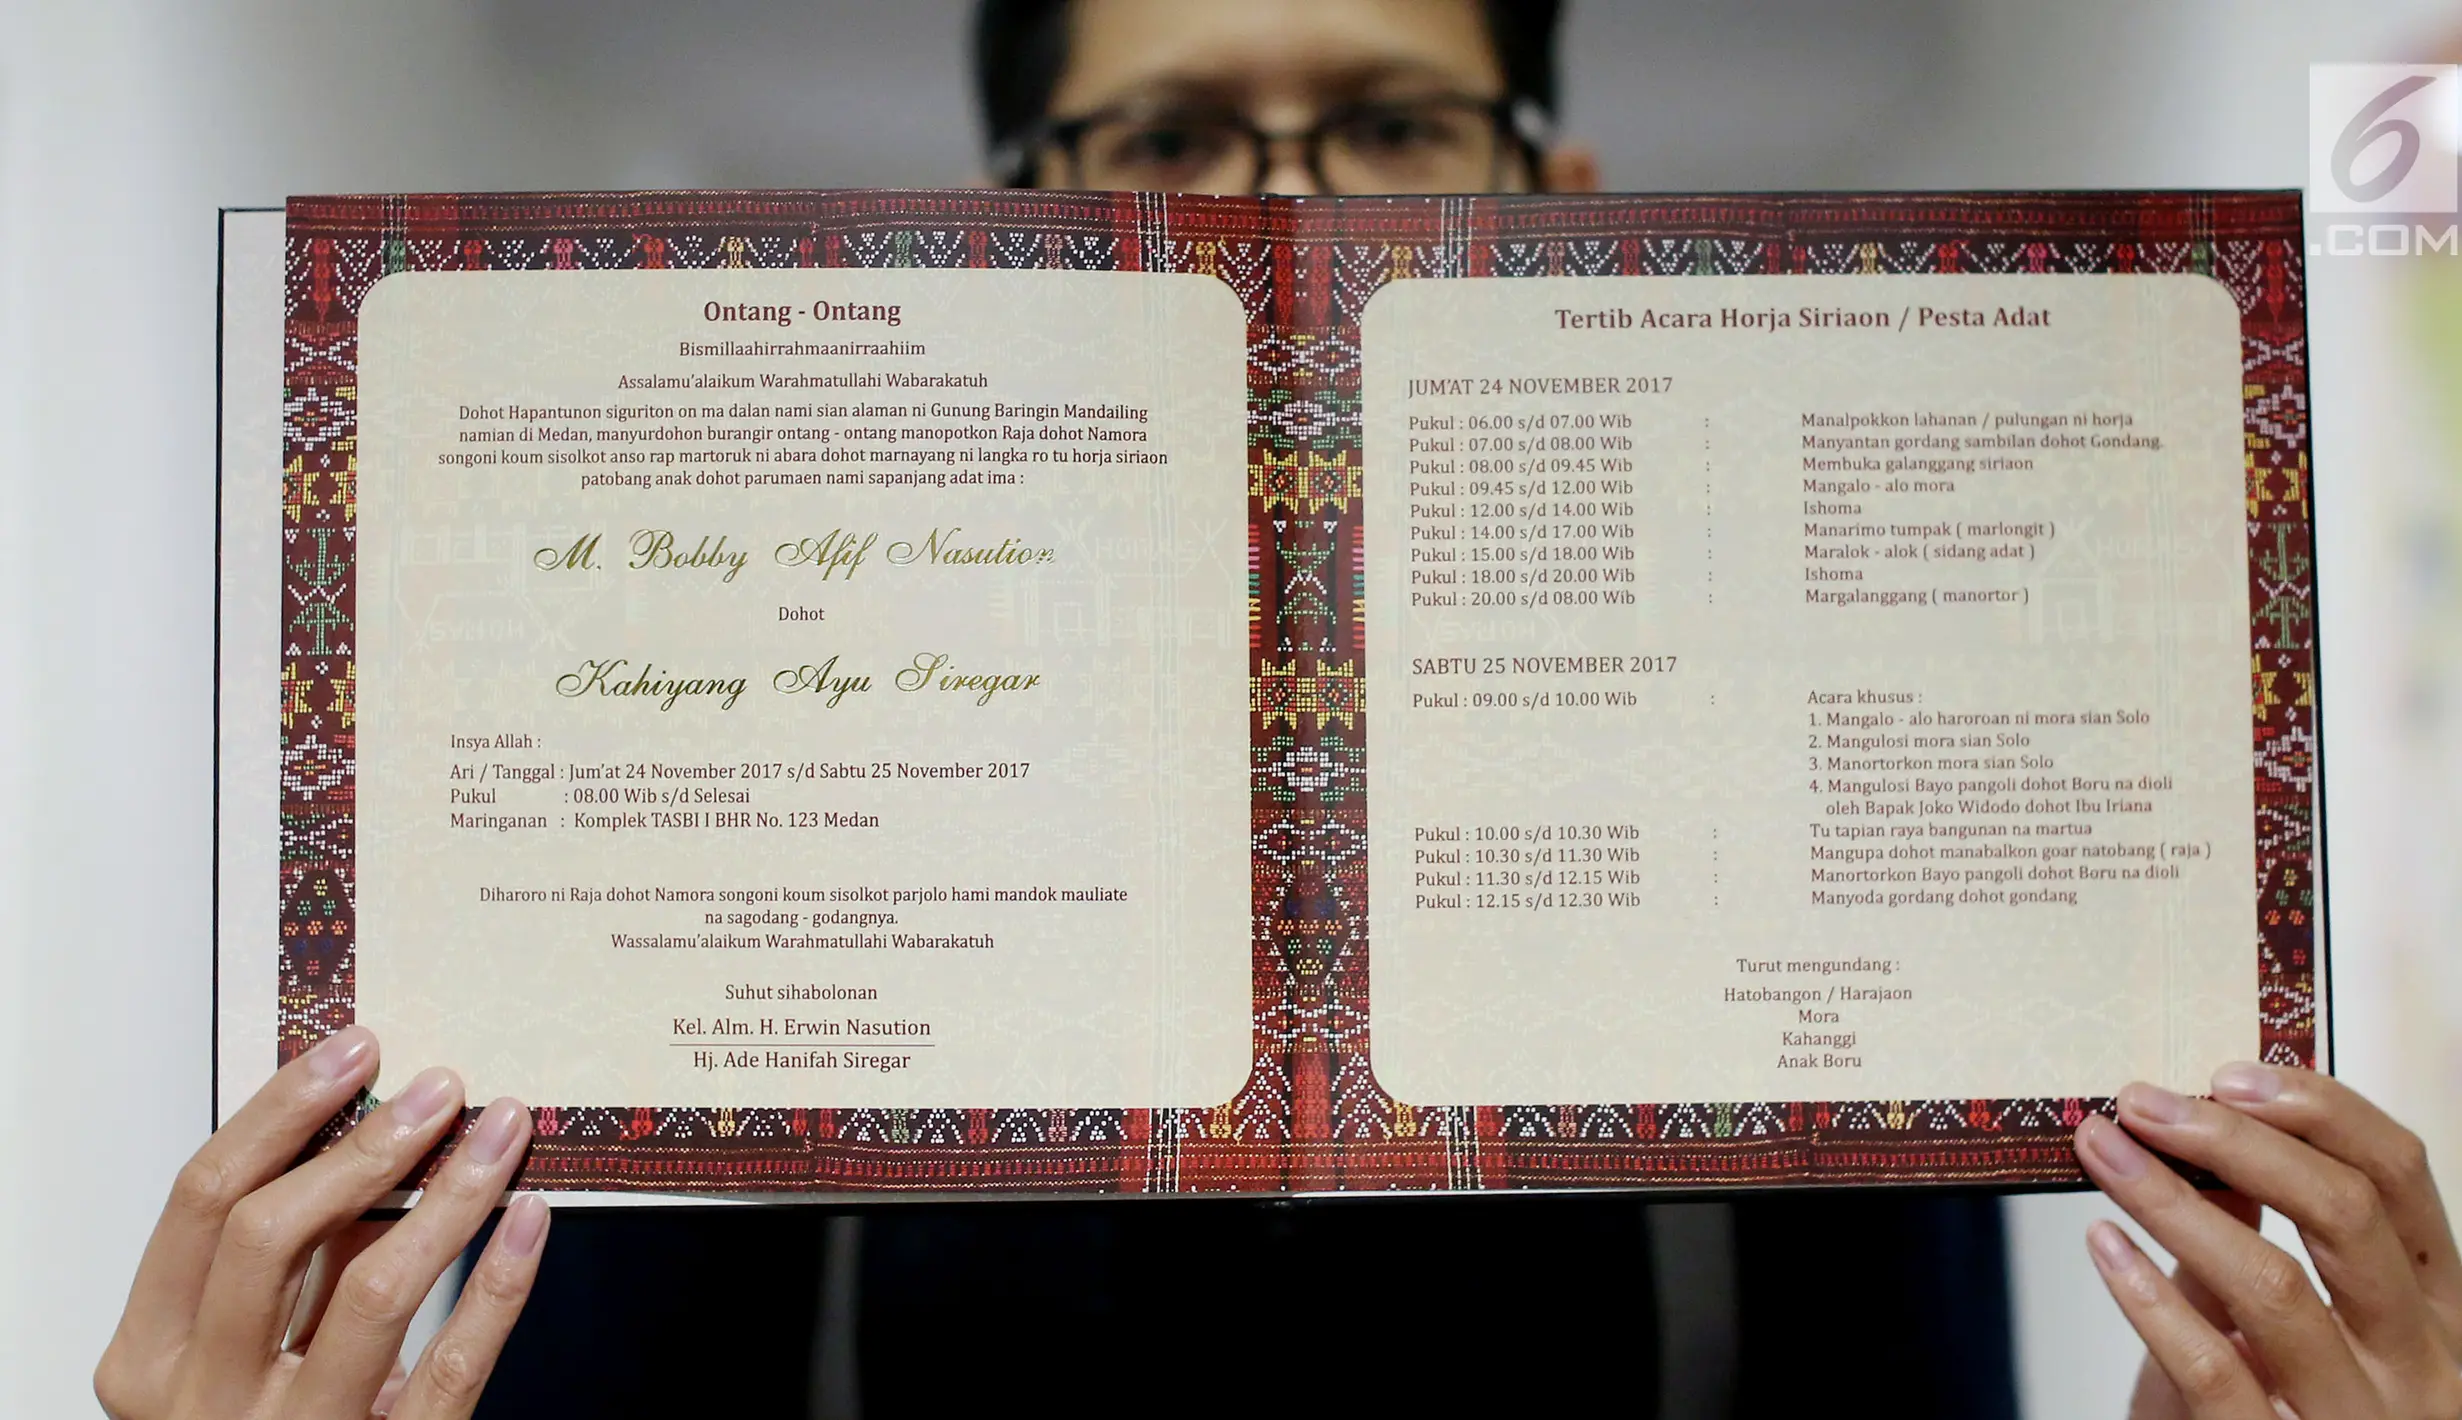 Ontang - Ontang
Bismillaahirrahmaanirraahiim
Assalamu'alaikum Warahmatullahi Wabarakatuh
Dohot Hapantunon siguriton on ma dalan nami sian alaman ni Gunung Baringin Mandailing
namian di Medan, manyurdohon burangir ontang - ontang manopotkon Raja dohot Namora
songoni koum sisolkot anso rap martoruk ni abara dohot marnayang ni langka ro tu horja siriaon
patobang anak dohot parumaen nami sapanjang adat ima :
M. Bobby Afif Nasution
Dohot
Kahiyang Ayu Siregar
Insya Allah :
Ari / Tanggal : Jum'at 24 November 2017 s/d Sabtu 25 November 2017
Pukul : 08.00 Wib s/d Selesai
Maringanan : Komplek TASBI I BHR No. 123 Medan
Diharoro ni Raja dohot Namora songoni koum sisolkot parjolo hami mandok mauliate
na sagodang - godangnya.
Wassalamu'alaikum Warahmatullahi Wabarakatuh
Suhut sihabolonan
Kel. Alm. H. Erwin Nasution
Hj. Ade Hanifah Siregar
Tertib Acara Horja Siriaon / Pesta Adat
JUM'AT 24 NOVEMBER 2017
Pukul : 06.00 s/d 07.00 Wib : Manalpokkon lahanan / pulungan ni horja
Pukul : 07.00 s/d 08.00 Wib : Manyantan gordang sambilan dohot Gondang.
Pukul : 08.00 s/d 09.45 Wib : Membuka galanggang siriaon
Pukul : 09.45 s/d 12.00 Wib : Mangalo - alo mora
Pukul : 12.00 s/d 14.00 Wib : Ishoma
Pukul : 14.00 s/d 17.00 Wib : Manarimo tumpak ( marlongit )
Pukul : 15.00 s/d 18.00 Wib : Maralok - alok ( sidang adat )
Pukul : 18.00 s/d 20.00 Wib : Ishoma
Pukul : 20.00 s/d 08.00 Wib : Margalanggang ( manortor )
SABTU 25 NOVEMBER 2017
Pukul : 09.00 s/d 10.00 Wib : Acara khusus :
1. Mangalo - alo haroroan ni mora sian Solo
2. Mangulosi mora sian Solo
3. Manortorkon mora sian Solo
4. Mangulosi Bayo pangoli dohot Boru na dioli
oleh Bapak Joko Widodo dohot Ibu Iriana
Pukul : 10.00 s/d 10.30 Wib : Tu tapian raya bangunan na martua
Pukul : 10.30 s/d 11.30 Wib : Mangupa dohot manabalkon goar natobang ( raja )
Pukul : 11.30 s/d 12.15 Wib : Manortorkon Bayo pangoli dohot Boru na dioli
Pukul : 12.15 s/d 12.30 Wib : Manyoda gordang dohot gondang
Turut mengundang :
Hatobangon / Harajaon
Mora
Kahanggi
Anak Boru
6
.COM